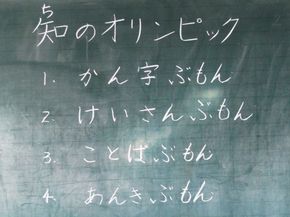 知のオリンピック
1. かん字ぶもん
2. けいさんぶもん
3. ことばぶもん
4. あんきぶもん